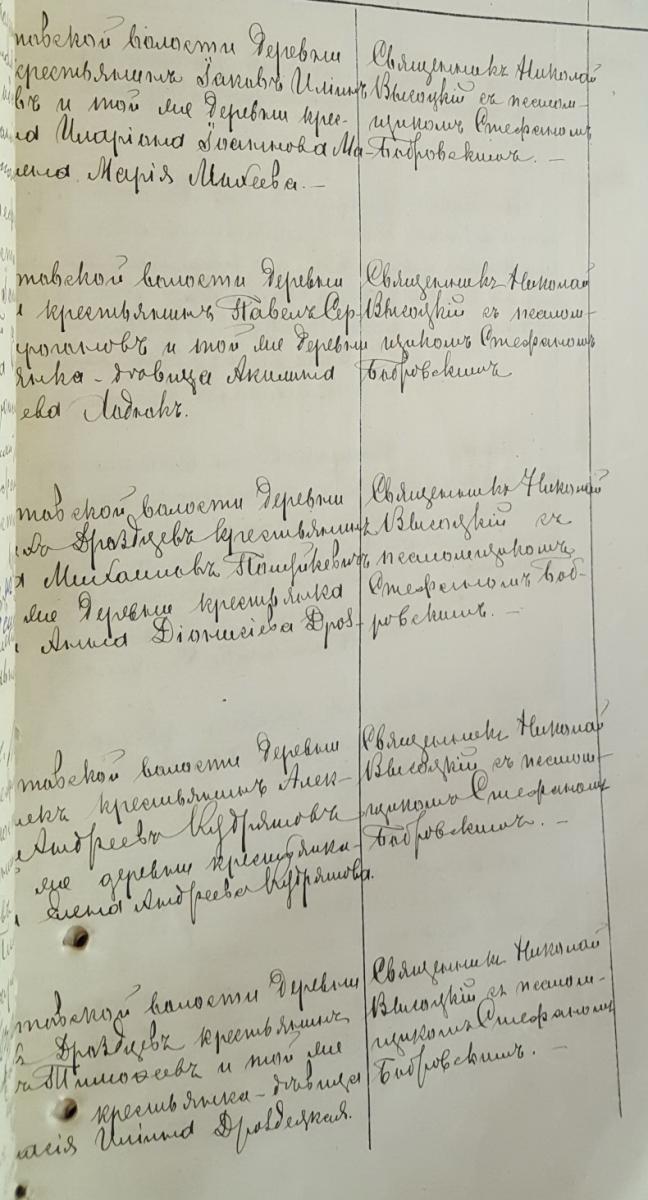 товской волости деревни
крестьянинъ Іаковъ Илiинъ
въ и той же деревни крес-
на Иларіона Іоаннова Ма-
лена Марія Михеева. —
Священникъ Николай
Высоцкій съ псалом-
щикомъ Стефаномъ
Бобровскимъ. —
товской волости деревни
крестьянинъ Павелъ Сер-
и той же деревни
янка-дѣвица Акилина
ева Ладнакъ.
Священникъ Николай
Высоцкій съ псалом-
щикомъ Стефаномъ
Бобровскимъ
товской волости деревни
Дроздцевъ крестьянинъ
Михаиловъ
же деревни крестьянка
Анна Діонисіева Дроз-
Священникъ Николай
Высоцкій съ
псаломщикомъ
Стефаномъ Боб-
ровскимъ. —
товской волости деревни
крестьянинъ Алек-
Андреевъ Кудряшовъ
же деревни крестьянка
Елена Андреева Кудряшова.
Священникъ Николай
Высоцкій съ псалом-
щикомъ Стефаномъ
Бобровскимъ. —
товской волости деревни
Дроздцевъ крестьянинъ
Тимоѳеевъ и той же
крестьянка-дѣвица
асія Иліина Дроздецкая.
Священникъ Николай
Высоцкій съ псалом-
щикомъ Стефаномъ
Бобровскимъ. —